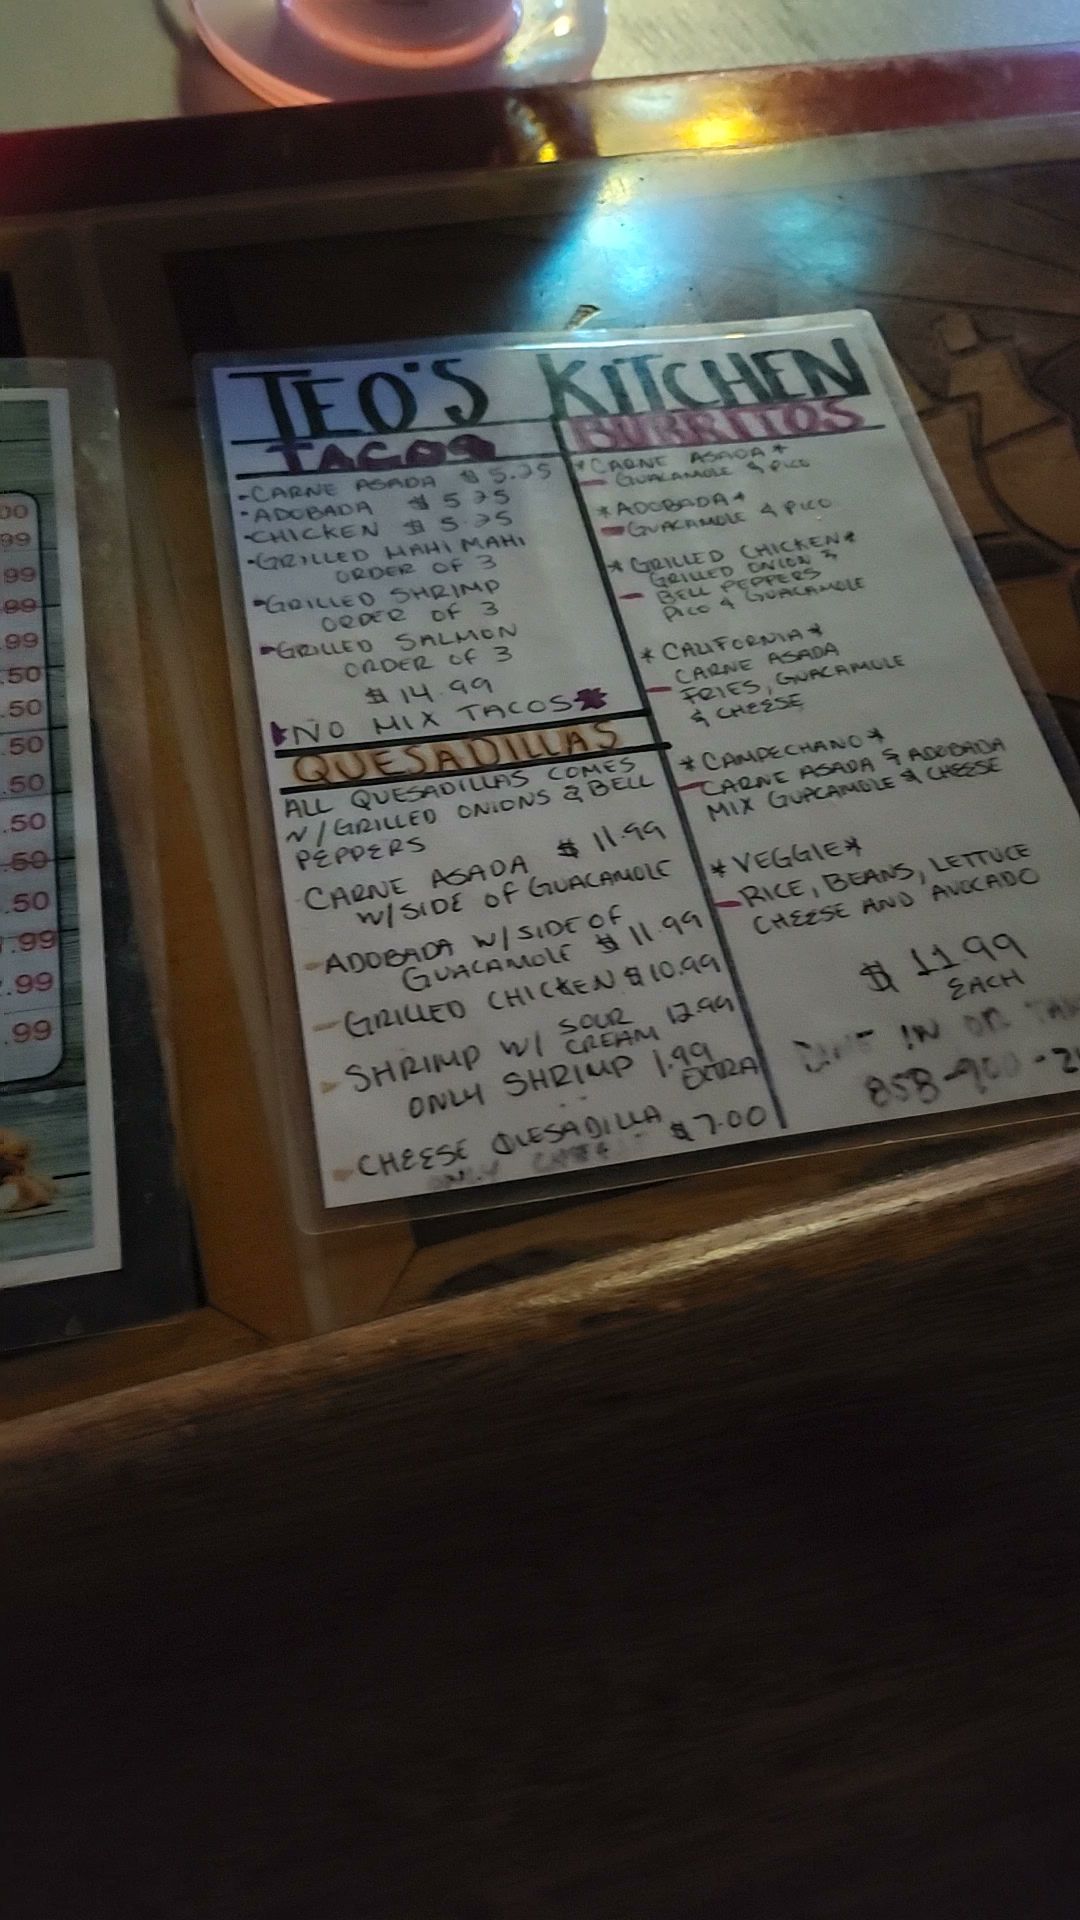 TEO'S KITCHEN
TACOS
-CARNE ASADA $5.25
-ADOBADA $5.25
-CHICKEN $5.25
-GRILLED MAHI MAHI
ORDER OF 3
-GRILLED SHRIMP
ORDER OF 3
-GRILLED SALMON
ORDER OF 3
$14.99
NO MIX TACOS
QUESADILLAS
ALL QUESADILLAS COMES
W/GRILLED ONIONS & BELL
PEPPERS
CARNE ASADA $11.99
W/SIDE OF GUACAMOLE
-ADOBADA W/SIDE OF
GUACAMOLE $11.99
-GRILLED CHICKEN $10.99
-SHRIMP W/ SOUR CREAM 12.99
ONLY SHRIMP 1.99
EXTRA
-CHEESE QUESADILLA $7.00
BURRITOS
*CARNE ASADA*
-GUACAMOLE & PICO
*ADOBADA*
-GUACAMOLE & PICO
*GRILLED CHICKEN*
GRILLED ONION &
-BELL PEPPERS
PICO & GUACAMOLE
*CALIFORNIA*
CARNE ASADA
-FRIES, GUACAMOLE
& CHEESE
*CAMPECHANO*
-CARNE ASADA & ADOBADA
MIX GUACAMOLE & CHEESE
*VEGGIE*
-RICE, BEANS, LETTUCE
CHEESE AND AVOCADO
$11.99
EACH
IN OR
858-900-2
.00
.99
.99
.99
.99
.50
.50
.50
.50
.50
.50
.50
.99
.99
.99